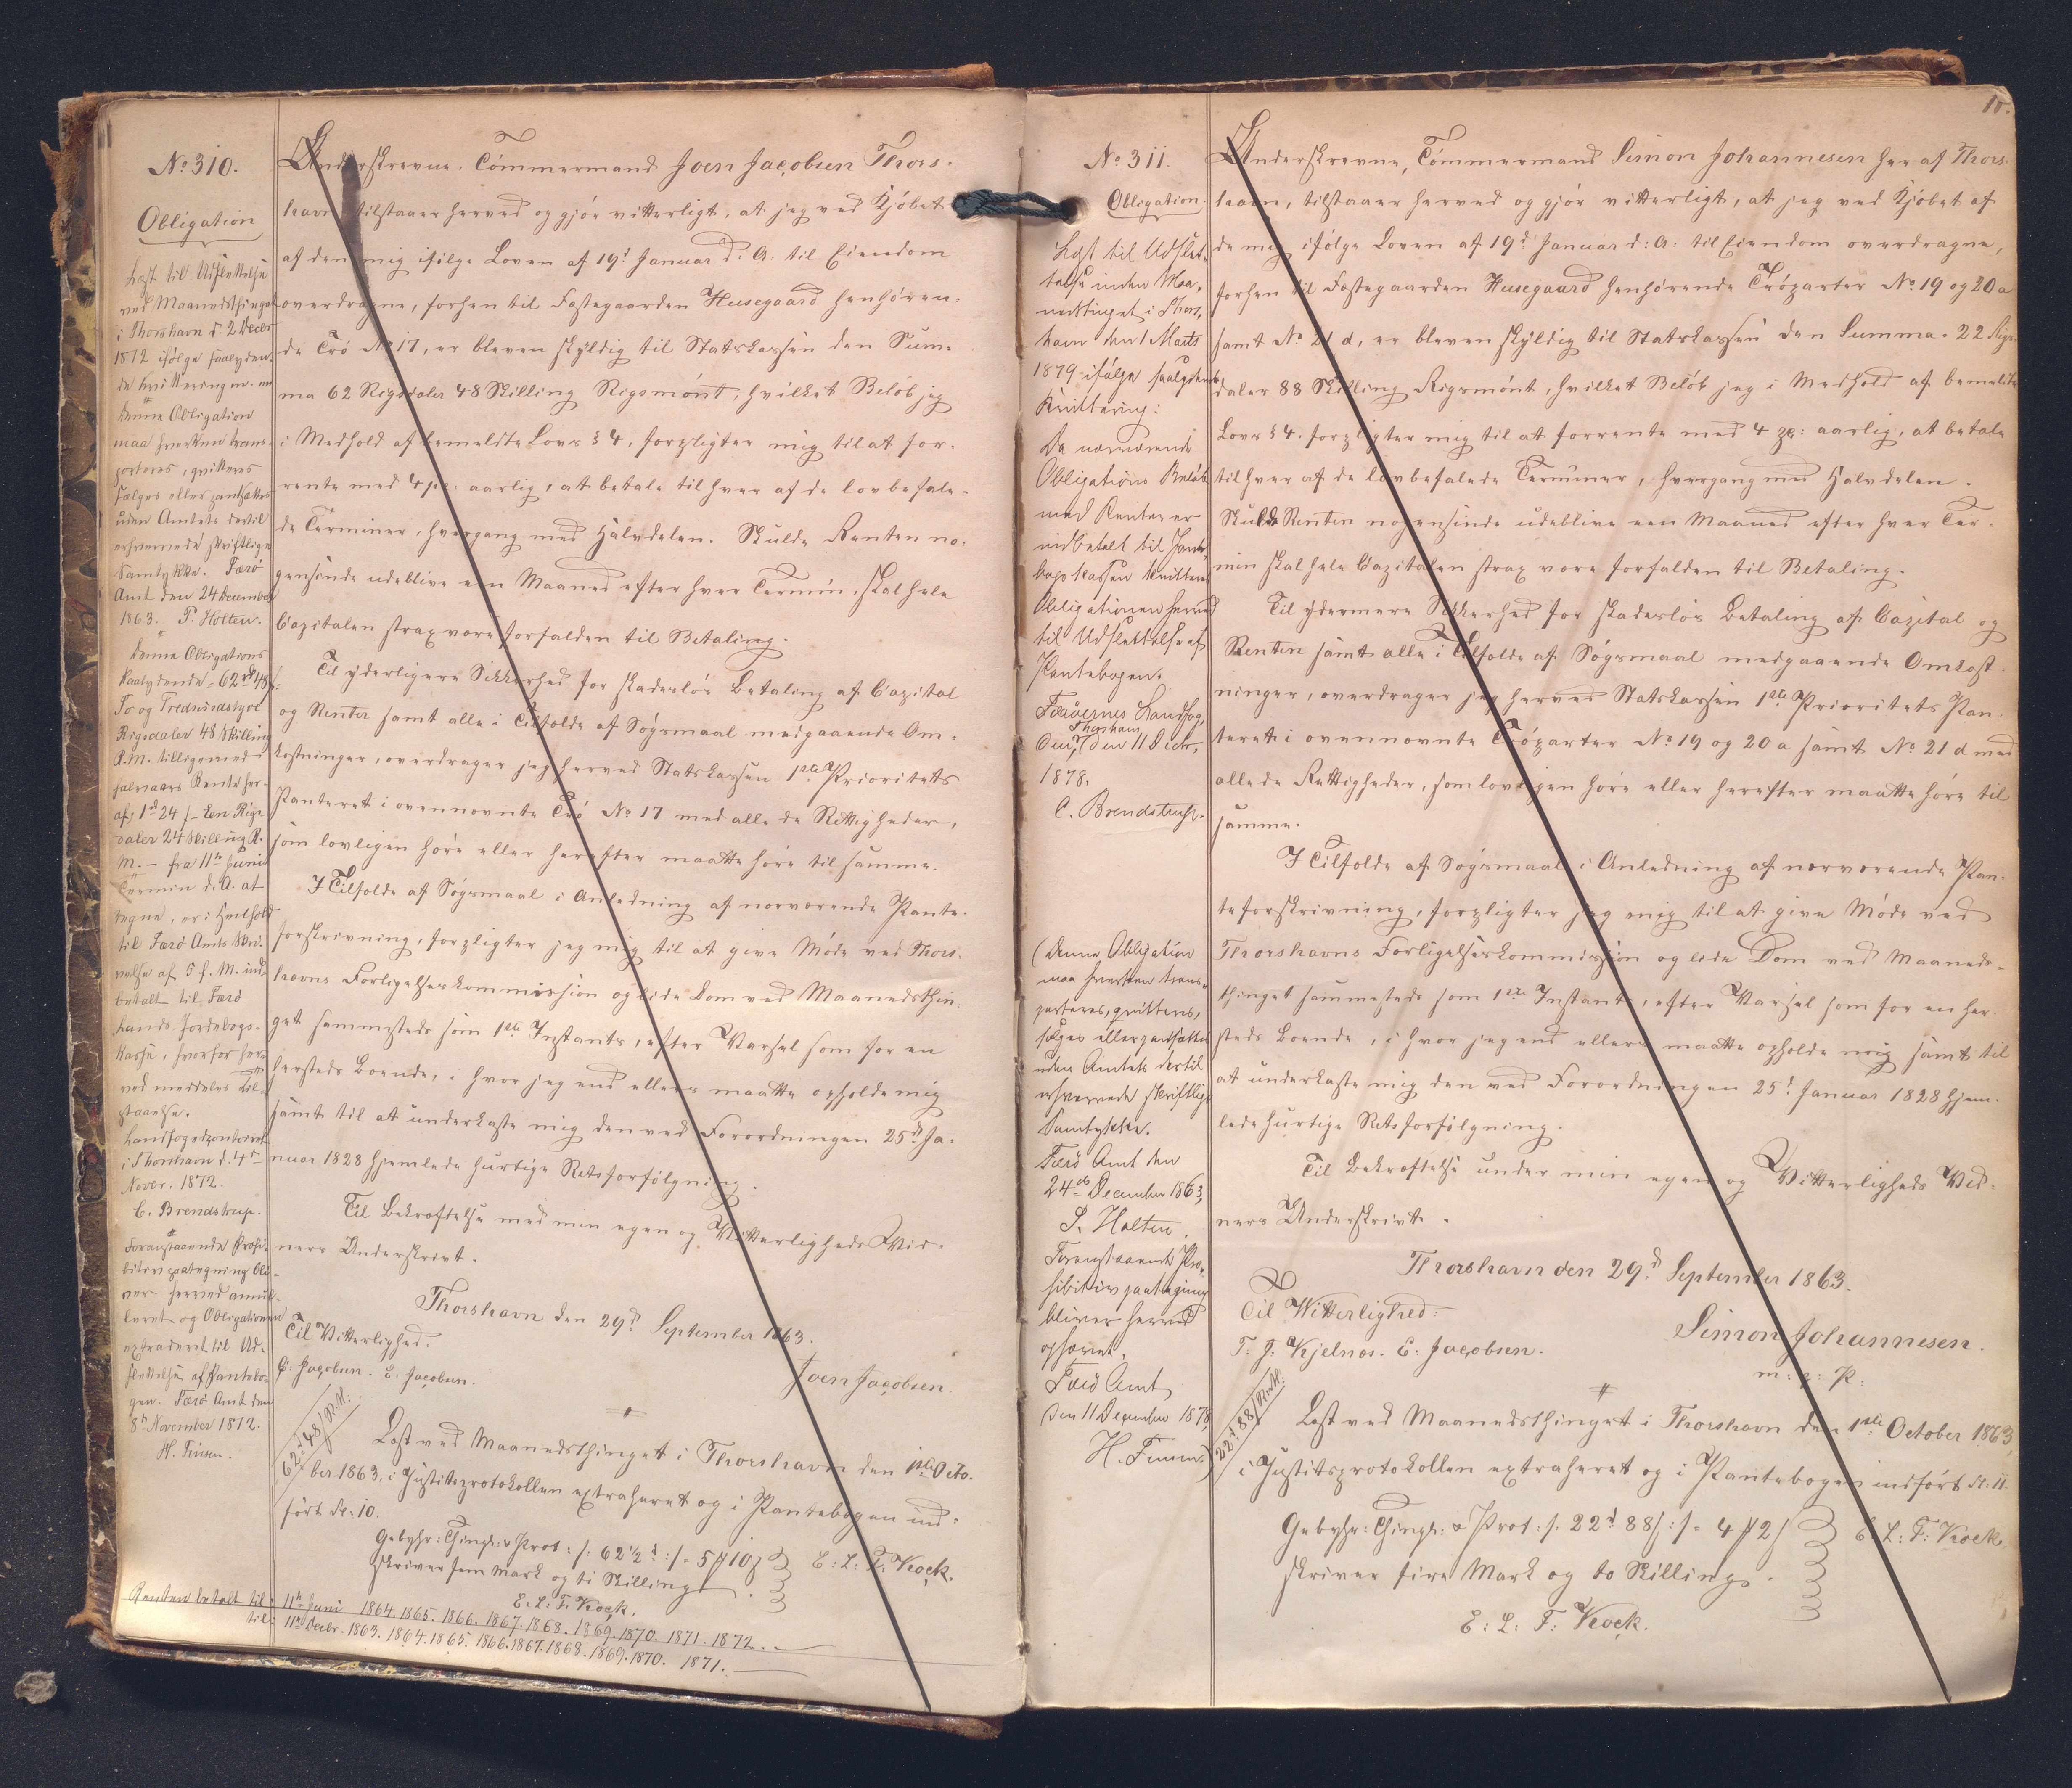 No. 310.
Obligation
Læst til Udslettelse
ved Maanedsthinget
i Thorshavn d. 2 Decbr
1872 ifølge saalyden-
de Kvitteringer.
Denne Obligation
maa hverken trans-
porteres, qvitteres
sælges eller pantsættes
uden Amtets dertil
erhvervede skriftlige
Samtykke. Færö
Amt den 24 December
1863. P. Holten.
Denne Obligations
Paalydende 62 rd 48 s:
To og Tredsindstyve
Rigsdaler 48 Skilling
R.M. tilligemed
halvaars Rente her-
af, 1 rd 24 s - Een Rigs-
daler 24 Skilling R.
M. - fra 11te Juni
Termin d. A. at
regne, er i Henhold
til Færö Amts Skri-
velse af 5 f. M. ind-
betalt til Færö
Lands Jordebogs-
kasse, hvorfor her-
ved meddeles Til-
staaelse.
Landfogedcontoiret
i Thorshavn d. 4de
Novbr. 1872.
C. Brendstrup.
Foranstaaende Prohi-
bitivpaategning bli-
ver herved annul-
leret og Obligationen
extraderet til Ud-
slettelse af Pantebo-
gen. Færö Amt den
8de November 1872.
H. Finsen.
Underskrevne, Tömmermand Joen Jacobsen Thors-
havn tilstaaer herved og gjör vitterligt, at jeg ved Kjöbet
af den mig ifölge Loven af 19d Januar d. A. til Eiendom
overdragne, forhen til Fæstegaarden Husegaard henhören-
de Tró No 17, er bleven skyldig til Statskassen den Sum-
ma 62 Rigsdaler 48 Skilling Rigsmönt, hvilket Belöb jeg
i Medhold af bemeldte Lovs § 4, forpligter mig til at for-
rente med 4 pc. aarlig, at betale til hver af de lovbefale-
de Terminer, hvergang med Halvdelen. Skulde Renten no-
gensinde udeblive een Maaned efter hver Termin, skal hele
Capitalen strax være forfalden til Betaling.
Til yderligere Sikkerhed for skadeslös Betaling af Capital
og Renter samt alle i Tilfælde af Sögsmaal medgaaende Om-
kostninger, overdrager jeg herved Statskassen 1ste Prioritets
Panteret i ovennævnte Tró No 17 med alle de Rettigheder,
som lovligen höre eller herefter maatte höre til samme.
I Tilfælde af Sögsmaal i Anledning af nærværende Pante-
forskrivning, forpligter jeg mig til at give Möde ved Thors-
havns Forligelseskommission og lide Dom ved Maanedsthin-
get sammesteds som 1ste Instants, efter Varsel som for en
hersteds Boende, i hvor jeg end ellers maatte opholde mig
samt til at underkaste mig den ved Forordningen 25d Ja-
nuar 1828 hjemlede hurtige Retsforfölgning.
Til Bekræftelse med min egen og Vitterligheds Vid-
ners Underskrivt.
Thorshavn den 29d September 1863.
Til Vitterlighed.
C. Jacobsen. E. Jacobsen.
Joen Jacobsen.
62 d 48 s R.M.
Læst ved Maanedsthinget i Thorshavn den 1ste Octo-
ber 1863, i Justitsprotokollen extraheret og i Pantebogen ind-
fört Sl: 10.
Gebyhr: Thingl: & Prot: /: 62½ d :/ = 5 ℔ 10 s
skriver fem Mark og ti Skilling.
E: L: F: Kock.
E. L: F. Kock.
Renten betalt til: 11te Juni 1864. 1865. 1866. 1867. 1868. 1869. 1870. 1871. 1872.
til: 11te Decbr. 1863. 1864. 1865. 1866. 1867. 1868. 1869. 1870. 1871.
10.
No. 311.
Obligation
Læst til Udslet-
telse inden Maa-
nedstinget i Thors-
havn den 1 Marts
1879 ifølge saalydende
Kvittering:
Da nærværende
Obligations Beløb
med Renter er
indbetalt til Jorde-
bogskassen kvitteres
Obligationen herved
til Udslettelse af
Pantebogen.
Færöernes Landfog-
deri, Thorshavn den 11 Decbr.
1878.
C. Brendstrup.
(Denne Obligation
maa hverken trans-
porteres, qvitteres,
sælges eller pantsættes
uden Amtets dertil
erhvervede skriftlige
Samtykke.
Færö Amt den
24de December 1863.
P. Holten.
Foranstaaende Pro-
hibitivpaategning
bliver herved
ophævet.
Færö Amt
den 11 December 1878.
H. Finsen.)
Underskrevne, Tömmermand Simon Johannesen her af Thors-
havn, tilstaaer herved og gjör vitterligt, at jeg ved Kjöbet af
de mig ifölge Loven af 19d Januar d: A: til Eiendom overdragne,
forhen til Fæstegaarden Husegaard henhörende Tröparter No 19 og 20 a
samt No 21 d, er bleven skyldig til Statskassen den Summa 22 Rigs-
daler 88 Skilling Rigsmönt, hvilket Belöb jeg i Medhold af bemeldte
Lovs § 4. forpligter mig til at forrente med 4 pc: aarlig, at betale
til hver af de lovbefalede Terminer, hvergang med Halvdelen.
Skulde Renten nogensinde udeblive een Maaned efter hver Ter-
min skal hele Capitalen strax være forfalden til Betaling.
Til ydermere Sikkerhed for skadeslös Betaling af Capital og
Renter samt alle i Tilfælde af Sögsmaal medgaaende Omkost-
ninger, overdrager jeg herved Statskassen 1ste Prioritets Pan-
teret i ovennævnte Tröparter No 19 og 20 a samt No 21 d med
alle de Rettigheder, som lovligen höre eller herefter maatte höre til
samme.
I Tilfælde af Sögsmaal i Anledning af nærværende Pan-
teforskrivning, forpligter jeg mig til at give Möde ved
Thorshavns Forligelseskommission og lide Dom ved Maaneds-
thinget sammesteds som 1ste Instants, efter Varsel som for en her-
steds Boende, i hvor jeg end ellers maatte opholde mig samt til
at underkaste mig den ved Forordningen 25d Januar 1828 hjem-
lede hurtige Retsforfölgning.
Til Bekræftelse under min egen og Vitterligheds Vid-
ners Underskrivt.
Thorshavn den 29d September 1863.
Til Vitterlighed:
T. J. Kjelnæs. E. Jacobsen.
Simon Johannesen.
m: p: P:
22 d 88 s R.M.
Læst ved Maanedsthinget i Thorshavn den 1ste October 1863,
i Justitsprotokollen extraheret og i Pantebogen indfört Sl: 11.
Gebyhr: Thingl: & Prot: /: 22 d 88 s :/ = 4 ℔ 2 s
skriver fire Mark og to Skilling.
E: L: F: Kock.
E: L: F: Kock.